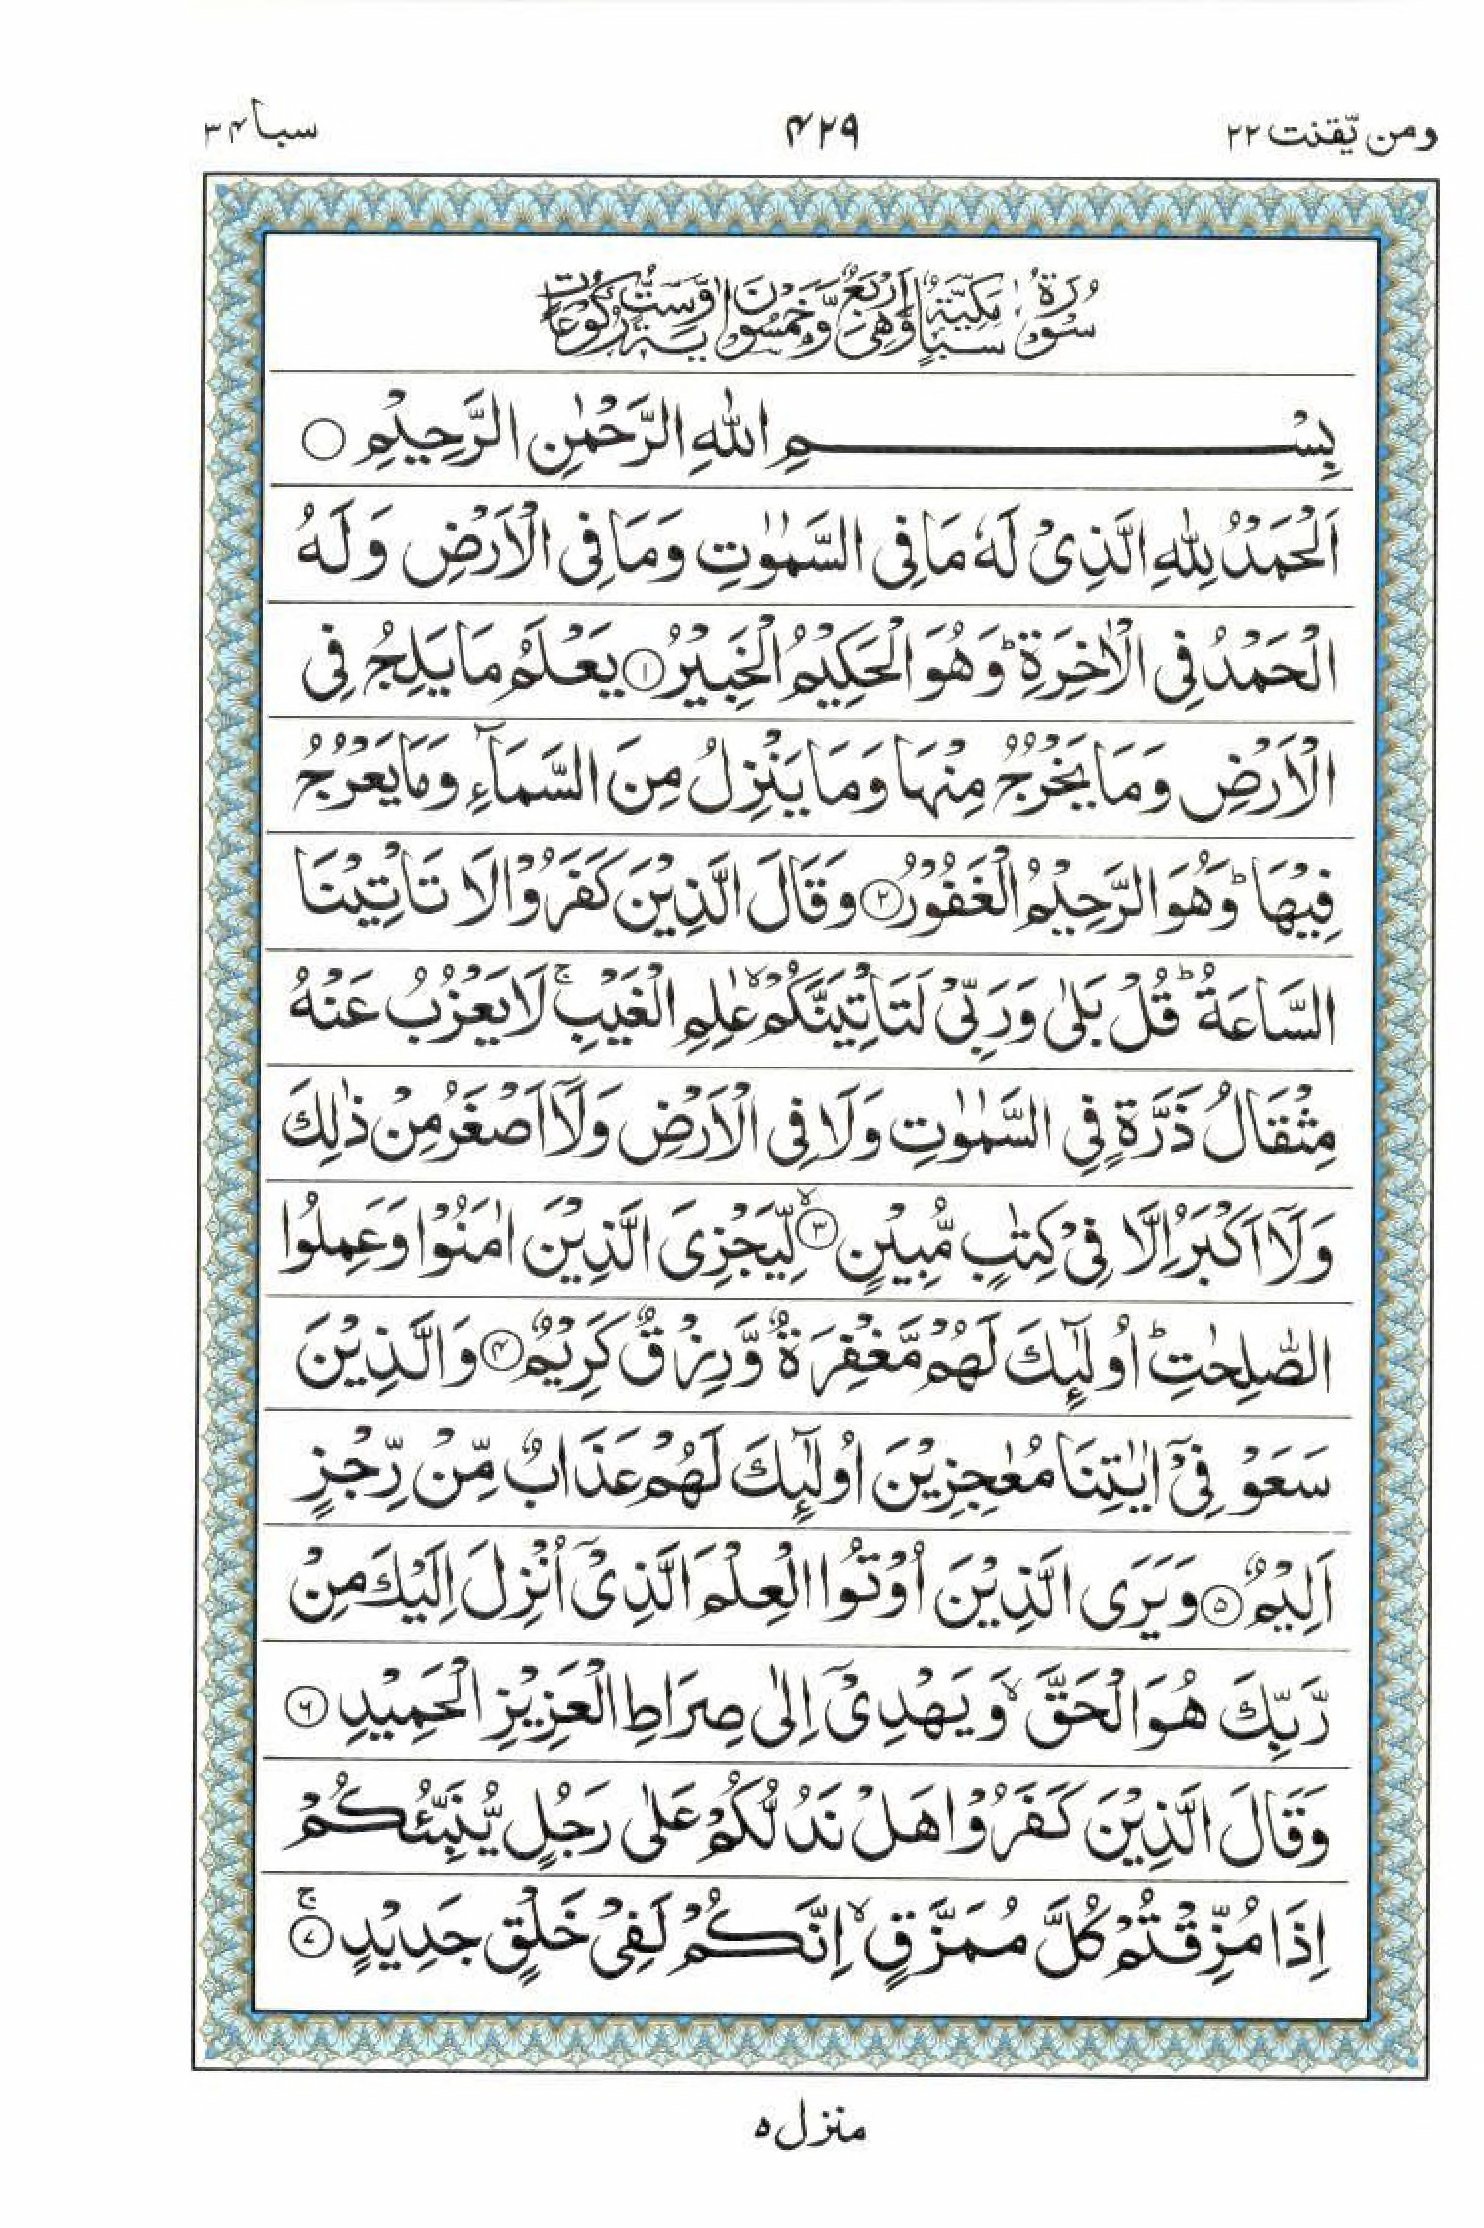 ومن يّقنت ٢٢ ۴٢٩ سبا ٣۴
سُوۡرَةُ سَبَاٍ مَكِّيَّةٌ وَّهِيَ اَرۡبَعٌ وَّخَمۡسُوۡنَ اٰيَةً وَّسِتُّ رُكُوۡعَاتٍ
بِسۡـــــــــــــمِ اللهِ الرَّحۡمٰنِ الرَّحِيۡمِ ۝
اَلۡحَمۡدُ لِلّٰهِ الَّذِىۡ لَهٗ مَا فِى السَّمٰوٰتِ وَمَا فِى الۡاَرۡضِ وَلَهُ
الۡحَمۡدُ فِى الۡاٰخِرَةِ ؕ وَهُوَ الۡحَكِيۡمُ الۡخَبِيۡرُ ۝١ يَعۡلَمُ مَا يَلِجُ فِى
الۡاَرۡضِ وَمَا يَخۡرُجُ مِنۡهَا وَمَا يَنۡزِلُ مِنَ السَّمَآءِ وَمَا يَعۡرُجُ
فِيۡهَا ؕ وَهُوَ الرَّحِيۡمُ الۡغَفُوۡرُ ۝٢ وَقَالَ الَّذِيۡنَ كَفَرُوۡا لَا تَاۡتِيۡنَا
السَّاعَةُ ؕ قُلۡ بَلٰى وَرَبِّىۡ لَتَاۡتِيَنَّكُمۡ ۙ عٰلِمِ الۡغَيۡبِ ۚ لَا يَعۡزُبُ عَنۡهُ
مِثۡقَالُ ذَرَّةٍ فِى السَّمٰوٰتِ وَلَا فِى الۡاَرۡضِ وَلَاۤ اَصۡغَرُ مِنۡ ذٰلِكَ
وَلَاۤ اَكۡبَرُ اِلَّا فِىۡ كِتٰبٍ مُّبِيۡنٍ ۝٣ۙ لِّيَجۡزِىَ الَّذِيۡنَ اٰمَنُوۡا وَعَمِلُوا
الصّٰلِحٰتِ ؕ اُولٰٓئِكَ لَهُمۡ مَّغۡفِرَةٌ وَّرِزۡقٌ كَرِيۡمٌ ۝۴ وَالَّذِيۡنَ
سَعَوۡ فِىۡۤ اٰيٰتِنَا مُعٰجِزِيۡنَ اُولٰٓئِكَ لَهُمۡ عَذَابٌ مِّنۡ رِّجۡزٍ
اَلِيۡمٌ ۝۵ وَيَرَى الَّذِيۡنَ اُوۡتُوا الۡعِلۡمَ الَّذِىۡۤ اُنۡزِلَ اِلَيۡكَ مِنۡ
رَّبِّكَ هُوَ الۡحَقَّ ۙ وَيَهۡدِىۡۤ اِلٰى صِرَاطِ الۡعَزِيۡزِ الۡحَمِيۡدِ ۝۶
وَقَالَ الَّذِيۡنَ كَفَرُوۡا هَلۡ نَدُلُّكُمۡ عَلٰى رَجُلٍ يُّنَبِّئُكُمۡ
اِذَا مُزِّقۡتُمۡ كُلَّ مُمَزَّقٍ ۙ اِنَّكُمۡ لَفِىۡ خَلۡقٍ جَدِيۡدٍ ۝۷ۚ
منزل ۵